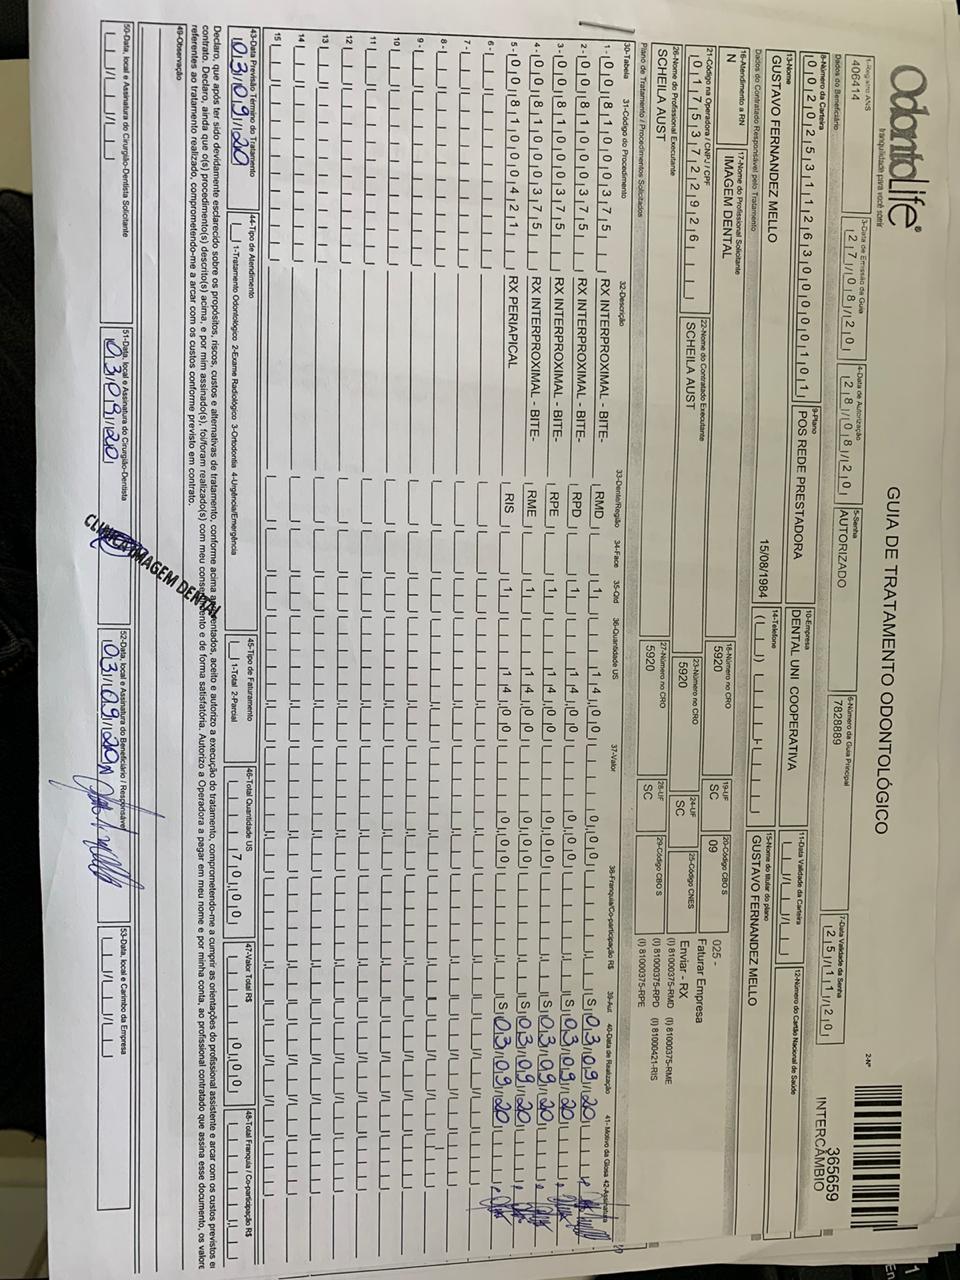 OdontoLife®
tranquilidade para você sorrir
GUIA DE TRATAMENTO ODONTOLÓGICO
2-Nº
365659
INTERCÂMBIO
1-Registro ANS
406414
3-Data de Emissão da Guia
27/08/20
4-Data de Autorização
28/08/20
5-Senha
AUTORIZADO
6-Número da Guia Principal
7828889
7-Data Validade da Senha
25/11/20
Dados do Beneficiário
8-Número da Carteira
00202531126300000101
9-Plano
POS REDE PRESTADORA
10-Empresa
DENTAL UNI COOPERATIVA
11-Data Validade da Carteira
12-Número do Cartão Nacional de Saúde
13-Nome
GUSTAVO FERNANDEZ MELLO
15/08/1984
14-Telefone
15-Nome do titular do plano
GUSTAVO FERNANDEZ MELLO
Dados do Contratado Responsável pelo Tratamento
16-Atendimento a RN
N
17-Nome do Profissional Solicitante
IMAGEM DENTAL
18-Número no CRO
5920
19-UF
SC
20-Código CBO S
09
025 -
Faturar Empresa
Enviar - RX
(I) 81000375-RMD (I) 81000375-RME
(I) 81000375-RPD (I) 81000421-RIS
(I) 81000375-RPE
21-Código na Operadora / CNPJ / CPF
01753722926
22-Nome do Contratado Executante
SCHEILA AUST
23-Número no CRO
5920
24-UF
SC
25-Código CNES
26-Nome do Profissional Executante
SCHEILA AUST
27-Número no CRO
5920
28-UF
SC
29-Código CBO S
Plano de Tratamento / Procedimentos Solicitados
30-Tabela 31-Código do Procedimento 32-Descrição 33-Dente/Região 34-Face 35-Qtd 36-Quantidade US 37-Valor 38-Franquia/Co-participação R$ 39-Aut 40-Data de Realização 41- Motivo da Glosa 42-Assinatura
1- 00 81000375 RX INTERPROXIMAL - BITE- RMD 1 14,00 0,00 S 03/09/20
2- 00 81000375 RX INTERPROXIMAL - BITE- RPD 1 14,00 0,00 S 03/09/20
3- 00 81000375 RX INTERPROXIMAL - BITE- RPE 1 14,00 0,00 S 03/09/20
4- 00 81000375 RX INTERPROXIMAL - BITE- RME 1 14,00 0,00 S 03/09/20
5- 00 81000421 RX PERIAPICAL RIS 1 14,00 0,00 S 03/09/20
6-
7-
8-
9-
10
11
12
13
14
15
43-Data Previsão Término do Tratamento
03/09/20
44-Tipo de Atendimento
1-Tratamento Odontológico 2-Exame Radiológico 3-Ortodontia 4-Urgência/Emergência
45-Tipo de Faturamento
1-Total 2-Parcial
46-Total Quantidade US
70,00
47-Valor Total R$
0,00
48-Total Franquia / Co-participação R$
Declaro, que após ter sido devidamente esclarecido sobre os propósitos, riscos, custos e alternativas de tratamento, conforme acima apresentados, aceito e autorizo a execução do tratamento, comprometendo-me a cumprir as orientações do profissional assistente e arcar com os custos previstos e
contrato. Declaro, ainda que o(s) procedimento(s) descrito(s) acima, e por mim assinado(s), foi/foram realizado(s) com meu consentimento e de forma satisfatória. Autorizo a Operadora a pagar em meu nome e por minha conta, ao profissional contratado que assina esse documento, os valore
referentes ao tratamento realizado, comprometendo-me a arcar com os custos conforme previsto em contrato.
49-Observação
50-Data, local e Assinatura do Cirurgião-Dentista Solicitante
51-Data, local e Assinatura do Cirurgião-Dentista
03/09/20
CLINICA IMAGEM DENTAL
52-Data, local e Assinatura do Beneficiário / Responsável
03/09/20
53-Data, local e Carimbo da Empresa